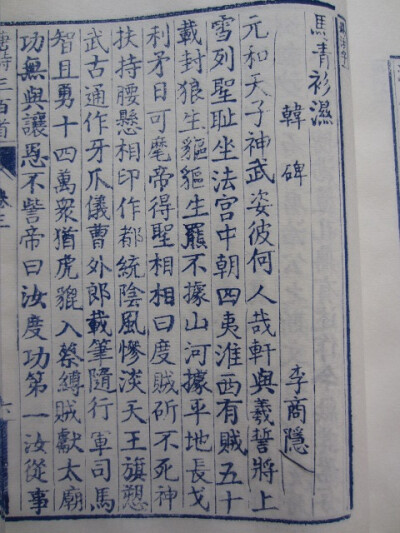 馬青衫濕
韓碑 李商隱
元和天子神武姿彼何人哉軒與羲誓將上
雪列聖恥坐法宮中朝四夷淮西有賊五十
載封狼生貙貙生羆不據山河據平地長戈
利矛日可麾帝得聖相相曰度賊斫不死神
扶持腰懸相印作都統陰風慘淡天王旗愬
武古通作牙爪儀曹外郎載筆隨行軍司馬
智且勇十四萬衆猶虎貔入蔡縛賊獻太廟
功無與讓恩不訾帝曰汝度功第一汝從事
唐詩三百首 卷三 六